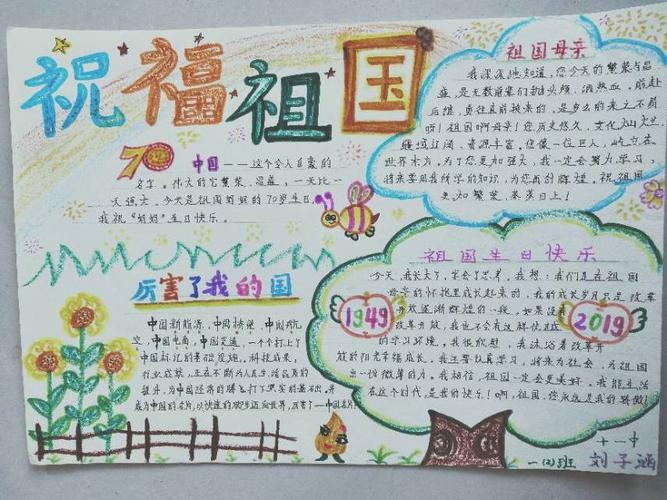 祝福祖国
70
中国——这个令人自豪的
名字。伟大的它繁荣、昌盛,一天比一
天强大。今天是祖国妈妈的70岁生日,
我祝“妈妈”生日快乐。
祖国母亲
我深深地知道,您今天的繁荣与昌
盛,是无数前辈们抛头颅,洒热血,前赴
后继,勇往直前换来的,是多么的来之不易
啊!祖国啊母亲!您历史悠久,文化灿烂
疆域辽阔,资源丰富,您像一位巨人,屹立在
世界东方,为了您更加强大,我一定会努力学习,
将来要用我所学的知识,为您再创辉煌。祝祖国
更加繁荣,蒸蒸日上!
厉害了我的国
中国新能源、中国桥梁、中国航
空、中国电商、中国交通,一个个打上了
中国标记的基础设施、科技成果,
行业成就,正在不断为人民生活品质的
提升,为中国经济的腾飞打下坚实的基石,并
成为中国的名片,以快速的步伐迈向世界,厉害了——中国名片
祖国生日快乐
今天,我长大了,学会了思考。我想:我们是在祖国
母亲的怀抱里成长起来的,我的成长岁月只是改革
开放逐渐辉煌的一段,如果没有
改革开放,我也不会有这样优越
的学习环境,我很欣慰,我沐浴着改革开
放的阳光幸福成长,我还要认真学习,将来为社会,为祖国
出一份微薄的力,我相信,祖国一定会更美好,我能生活
在这个时代,是我的快乐!啊,祖国,您永远是我的骄傲!
1949
2019
十一中
一(2)班 刘子涵